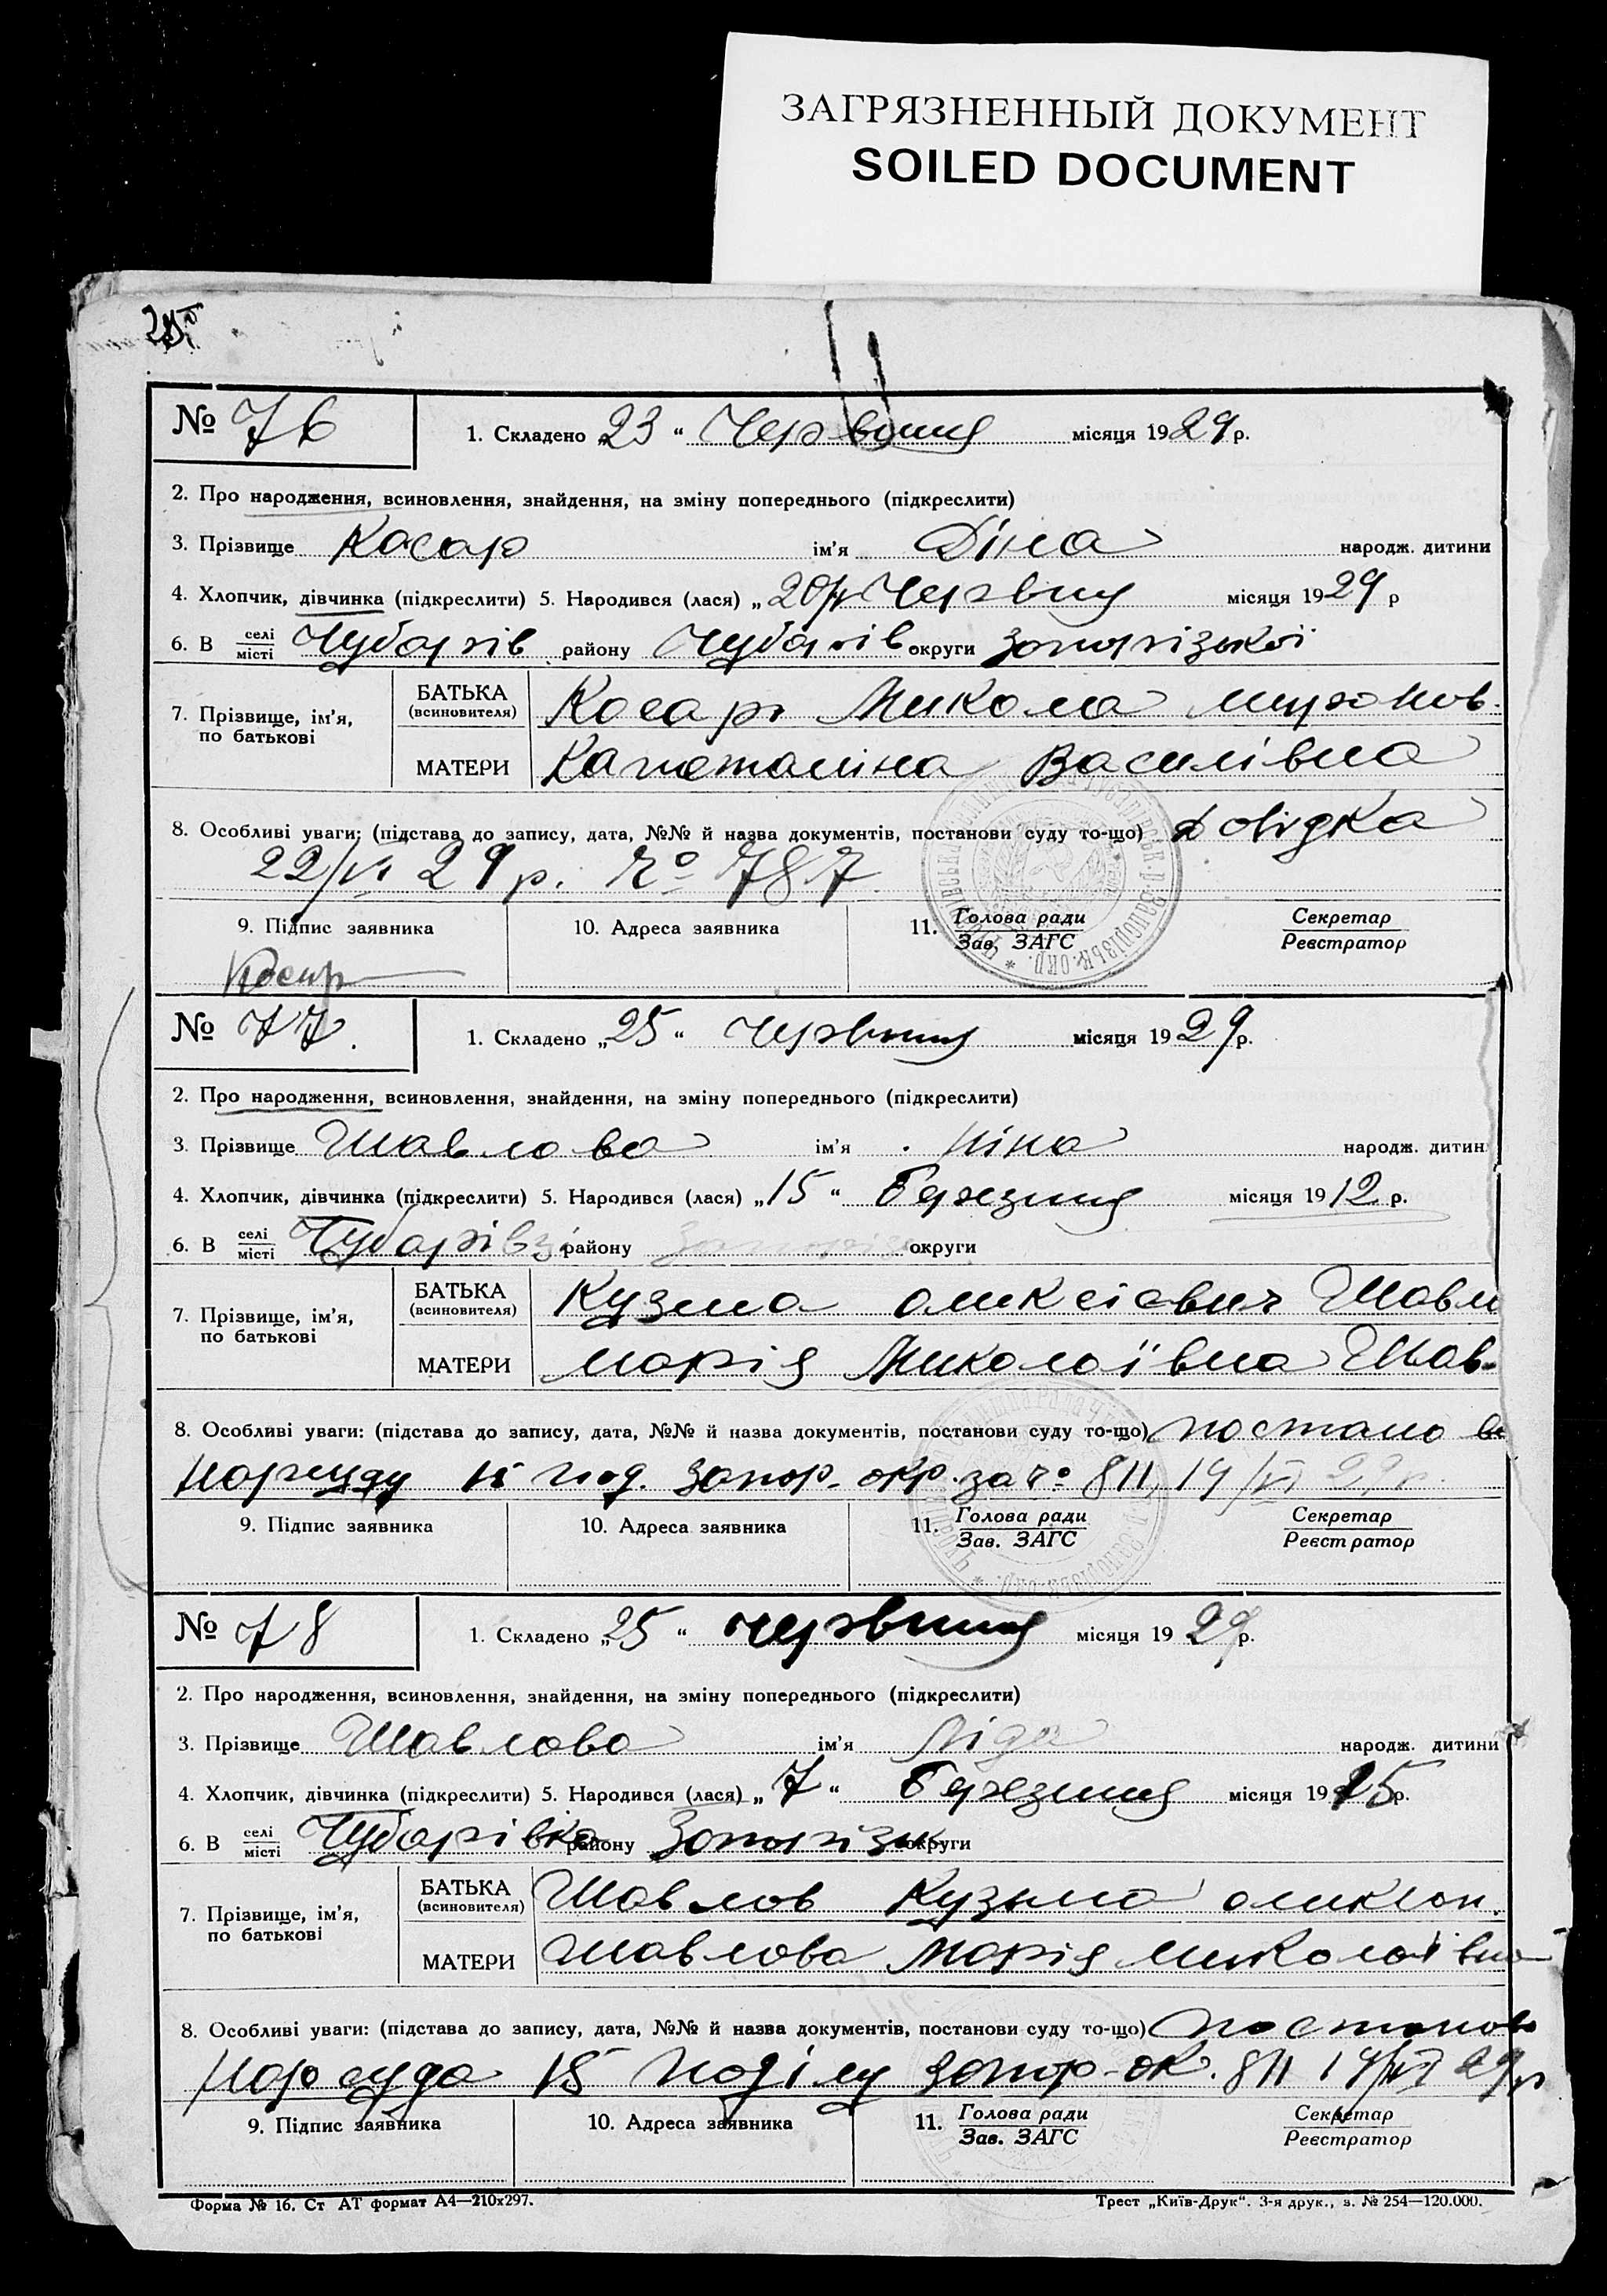 ЗАГРЯЗНЕННЫЙ ДОКУМЕНТ
SOILED DOCUMENT
№ 76
1. Складено „23“ Червьния місяця 1929 р.
2. Про народження, всиновлення, знайдення, на зміну попереднього (підкреслити)
3. Прізвище Косарь ім'я Діна народж. дитини
4. Хлопчик, дівчинка (підкреслити) 5. Народився (лася) „20 Червня місяця 1929 р
6. В селі місті Чубарів району Чубарів округи Запорізької
7. Прізвище, ім'я, по батькові
БАТЬКА (всиновителя) Косарь Микола миронов.
МАТЕРИ Капеталіна Василівна
8. Особливі уваги: (підстава до запису, дата, №№ й назва документів, постанови суду то-що) довідка
22/VI 29 р. № 787
9. Підпис заявника
10. Адреса заявника
11. Голова ради Зав. ЗАГС
Секретар Реєстратор
Косарь
№ 77.
1. Складено „25“ червьния місяця 1929 р.
2. Про народження, всиновлення, знайдення, на зміну попереднього (підкреслити)
3. Прізвище Шавлова ім'я Ніна народж. дитин
4. Хлопчик, дівчинка (підкреслити) 5. Народився (лася) „15“ Березния місяця 1912 р.
6. В селі місті Чубарівці району округи
7. Прізвище, ім'я, по батькові
БАТЬКА (всиновителя) Кузма Олексієвич Шавл
МАТЕРИ Марія Миколаївна Шав
8. Особливі уваги: (підстава до запису, дата, №№ й назва документів, постанови суду то-що) постанов
Нарсуду 15 под. Запор. окр. за № 811, 14/VI 29 р.
9. Підпис заявника
10. Адреса заявника
11. Голова ради Зав. ЗАГС
Секретар Реєстратор
№ 78
1. Складено „25“ червьния місяця 1929 р.
2. Про народження, всиновлення, знайдення, на зміну попереднього (підкреслити)
3. Прізвище Шавлова ім'я Ліда народж. дитини
4. Хлопчик, дівчинка (підкреслити) 5. Народився (лася) „7“ Березния місяця 1915 р.
6. В селі місті Чубарівка району Запорізьк округи
7. Прізвище, ім'я, по батькові
БАТЬКА (всиновителя) Шавлов Кузьма
МАТЕРИ Шавлова Марія Миколаївна
8. Особливі уваги: (підстава до запису, дата, №№ й назва документів, постанови суду то-що) постанов
Нарсуда 15 Поділу Запор. ок. 811 14/VI 29 р
9. Підпис заявника
10. Адреса заявника
11. Голова ради Зав. ЗАГС
Секретар Реєстратор
Форма № 16. Ст АТ формат А4—210х297.
Трест „Київ-Друк“. 3-я друк., з. № 254—120.000.